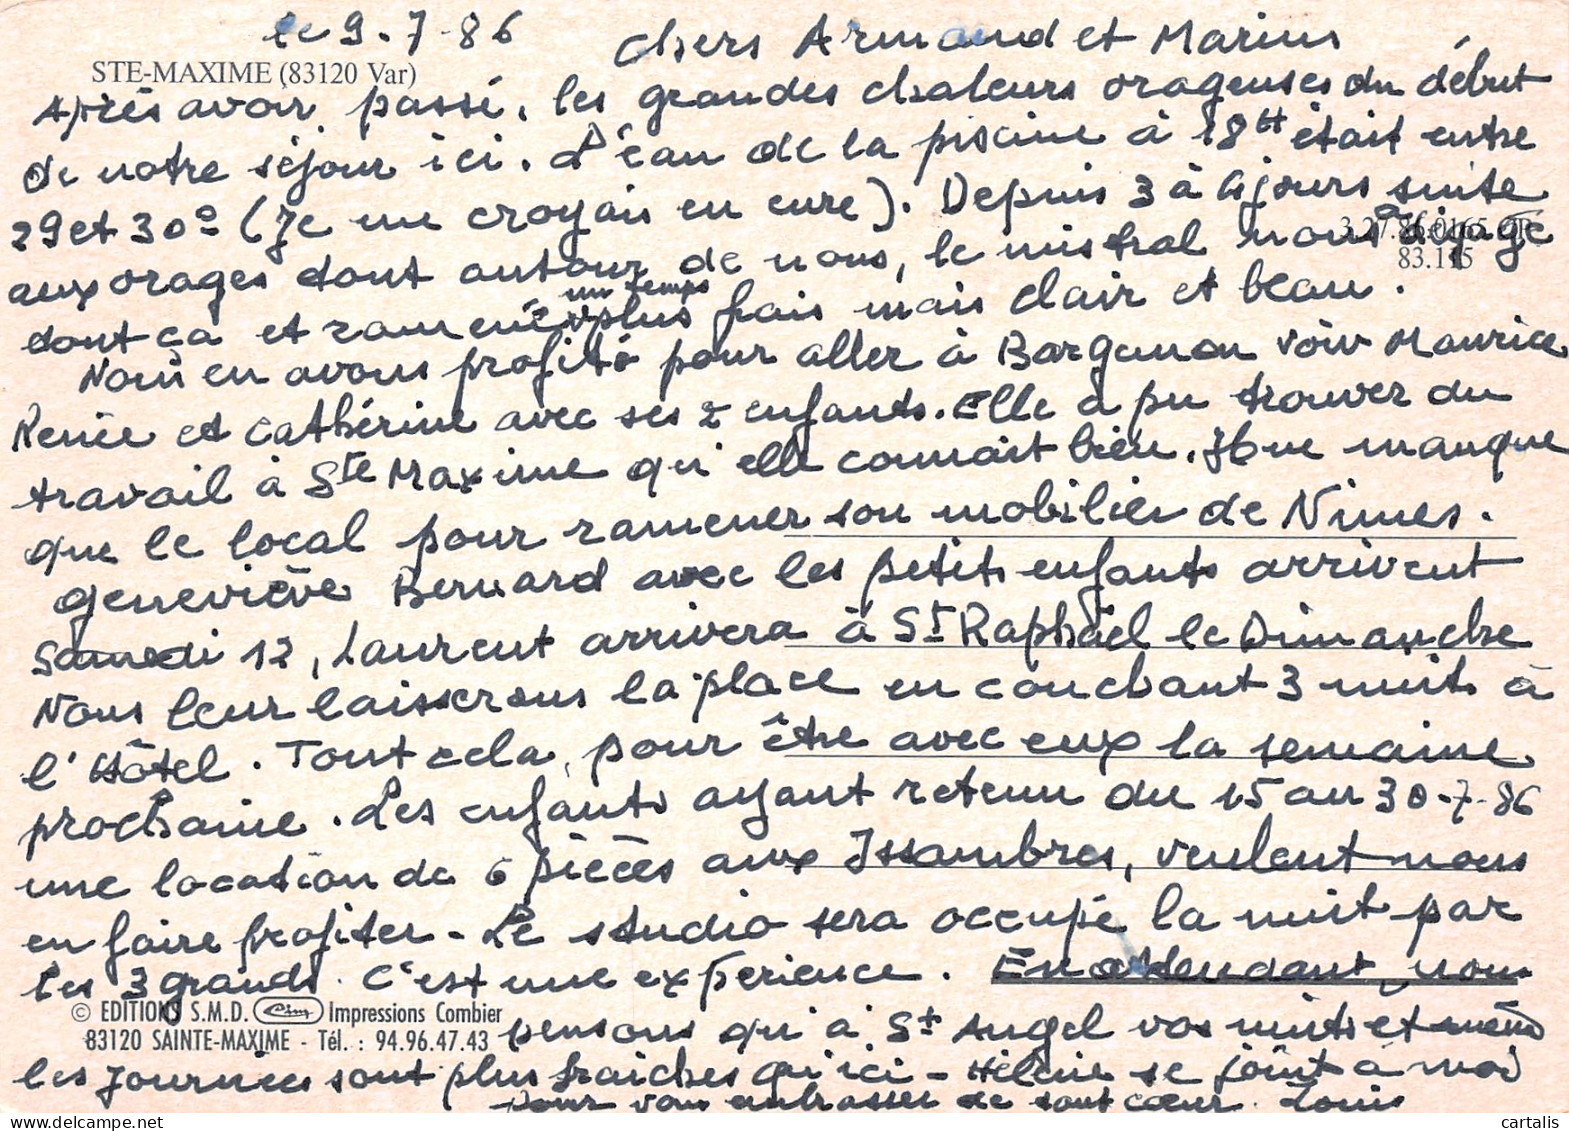 le 9.7.86
Chers Armand et Marius
STE-MAXIME (83120 Var)
Après avoir passé, les grandes chaleurs orageuses du début
de notre séjour ici. L'eau de la piscine à 18H était entre
29 et 30° (Je me croyais en cure). Depuis 3 à 4 jours suite
3.27.86.0165
83.115
aux orages tout autour de nous, le mistral nous a dégagé
tout ça et ramené un temps plus frais mais clair et beau.
Nous en avons profité pour aller à Bargemon voir Maurice
Renée et Cathérine avec ses 2 enfants. Elle a pu trouver du
travail à Ste Maxime qu'elle connait bien. Il ne manque
que le local pour ramener son mobilier de Nimes.
Geneviève Bernard avec les petits enfants arrivent
Samedi 12, Laurent arrivera à St Raphaël le Dimanche
Nous leur laisserons la place en couchant 3 nuits à
l'Hôtel. Tout cela, pour être avec eux la semaine
prochaine. Les enfants ayant retenu du 15 au 30-7-86
une location de 6 pièces aux Issambres, veulent nous
en faire profiter - Le studio sera occupé la nuit par
les 3 grands. C'est une expérience. En attendant, nous
© EDITIONS S.M.D. Cim Impressions Combier
83120 SAINTE-MAXIME - Tél. : 94.96.47.43
pensons qu'à St Angel vos nuits et même
les journées sont plus fraiches qu'ici - Hélène se joint à moi
pour vous embrasser de tout cœur. Louis
cartalis